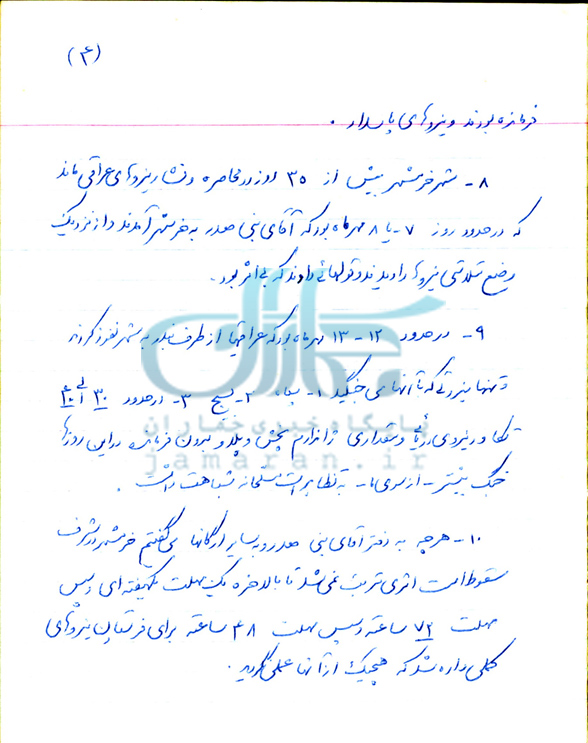 (۴)
فرمانده بودند و نیروهای پاسدار .
۸- شهر خرمشهر بیش از ۳۵ روز در محاصره و فشار نیروهای عراقی ماند
که در حدود روز ۷- یا ۸ مهرماه بود که آقای بنی صدر به خرمشهر آمدند و از نزدیک
وضع نیروها را دیدند و قولهائی دادند که بی اثر بود .
۹- در حدود ۱۲ - ۱۳ مهرماه بود که عراقیها از طرف بندر به شهر نفوذ کردند
و تنها نیروئی که با آنها می جنگید ۱- سپاه ۲- بسیج ۳- در حدود ۳۰ الی ۴۰
تکاور نیروی دریائی و مقداری ژاندارم پخش و پلا و بدون فرمانده در این روزها
جنگ بیشتر - از سوی ما - به تظاهرات مسلحانه شباهت داشت .
جماران
پایگاه خبری جماران
jamaran.ir
۱۰- هرچه به دفتر آقای بنی صدر و به سایر ارگانها می گفتیم خرمشهر در شرف
سقوط است اثری ترتیب نمی شد تا بالاخره یک مهلت یکهفته ای و سپس
مهلت ۷۲ ساعته و سپس مهلت ۴۸ ساعته برای فرستادن نیروهای
کمکی داده شد که هیچیک از آنها عملی نگردید .